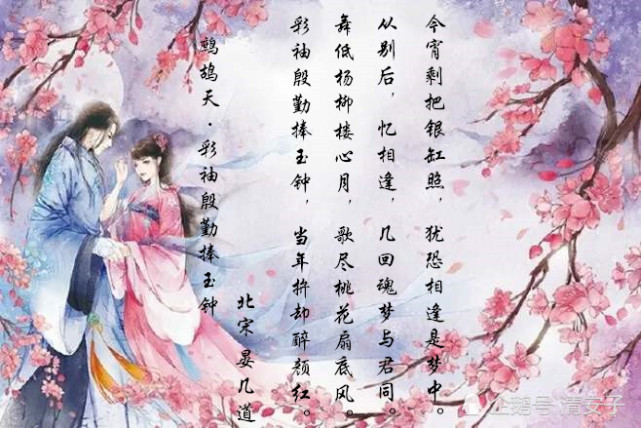 鹧鸪天·彩袖殷勤捧玉钟
北宋晏几道
彩袖殷勤捧玉钟，当年拚却醉颜红。
舞低杨柳楼心月，歌尽桃花扇底风。
从别后，忆相逢，几回魂梦与君同。
今宵剩把银缸照，犹恐相逢是梦中。
企鹅号 清安子